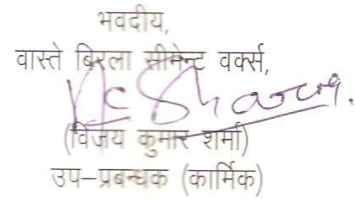 भवदीय,
वास्ते बिरला सीमेन्ट वर्क्स,
(विजय कुमार शर्मा)
उप–प्रबन्धक (कार्मिक)